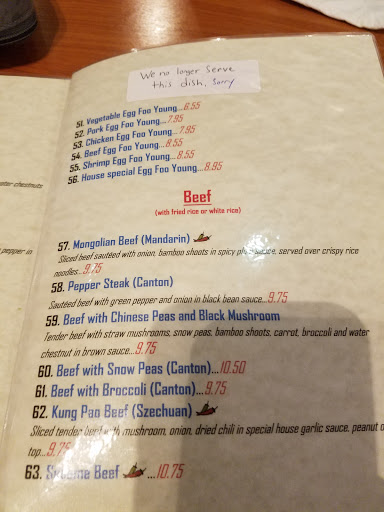 We no longer serve
this dish, sorry
51. Vegetable Egg Foo Young...6.55
52. Pork Egg Foo Young...7.95
53. Chicken Egg Foo Young...7.95
54. Beef Egg Foo Young...8.55
55. Shrimp Egg Foo Young...8.55
56. House special Egg Foo Young...8.95
ater chestnuts
Beef
(with fried rice or white rice)
pepper in
57. Mongolian Beef (Mandarin)
Sliced beef sautéed with onion, bamboo shoots in spicy sauce, served over crispy rice
noodles...9.75
58. Pepper Steak (Canton)
Sautéed beef with green pepper and onion in black bean sauce...9.75
59. Beef with Chinese Peas and Black Mushroom
Tender beef with straw mushrooms, snow peas, bamboo shoots, carrot, broccoli and water
chestnut in brown sauce...9.75
60. Beef with Snow Peas (Canton)...10.50
61. Beef with Broccoli (Canton)...9.75
62. Kung Pao Beef (Szechuan)
Sliced tender beef with mushroom, onion, dried chili in special house garlic sauce, peanut o
top...9.75
63. Beef ...10.75